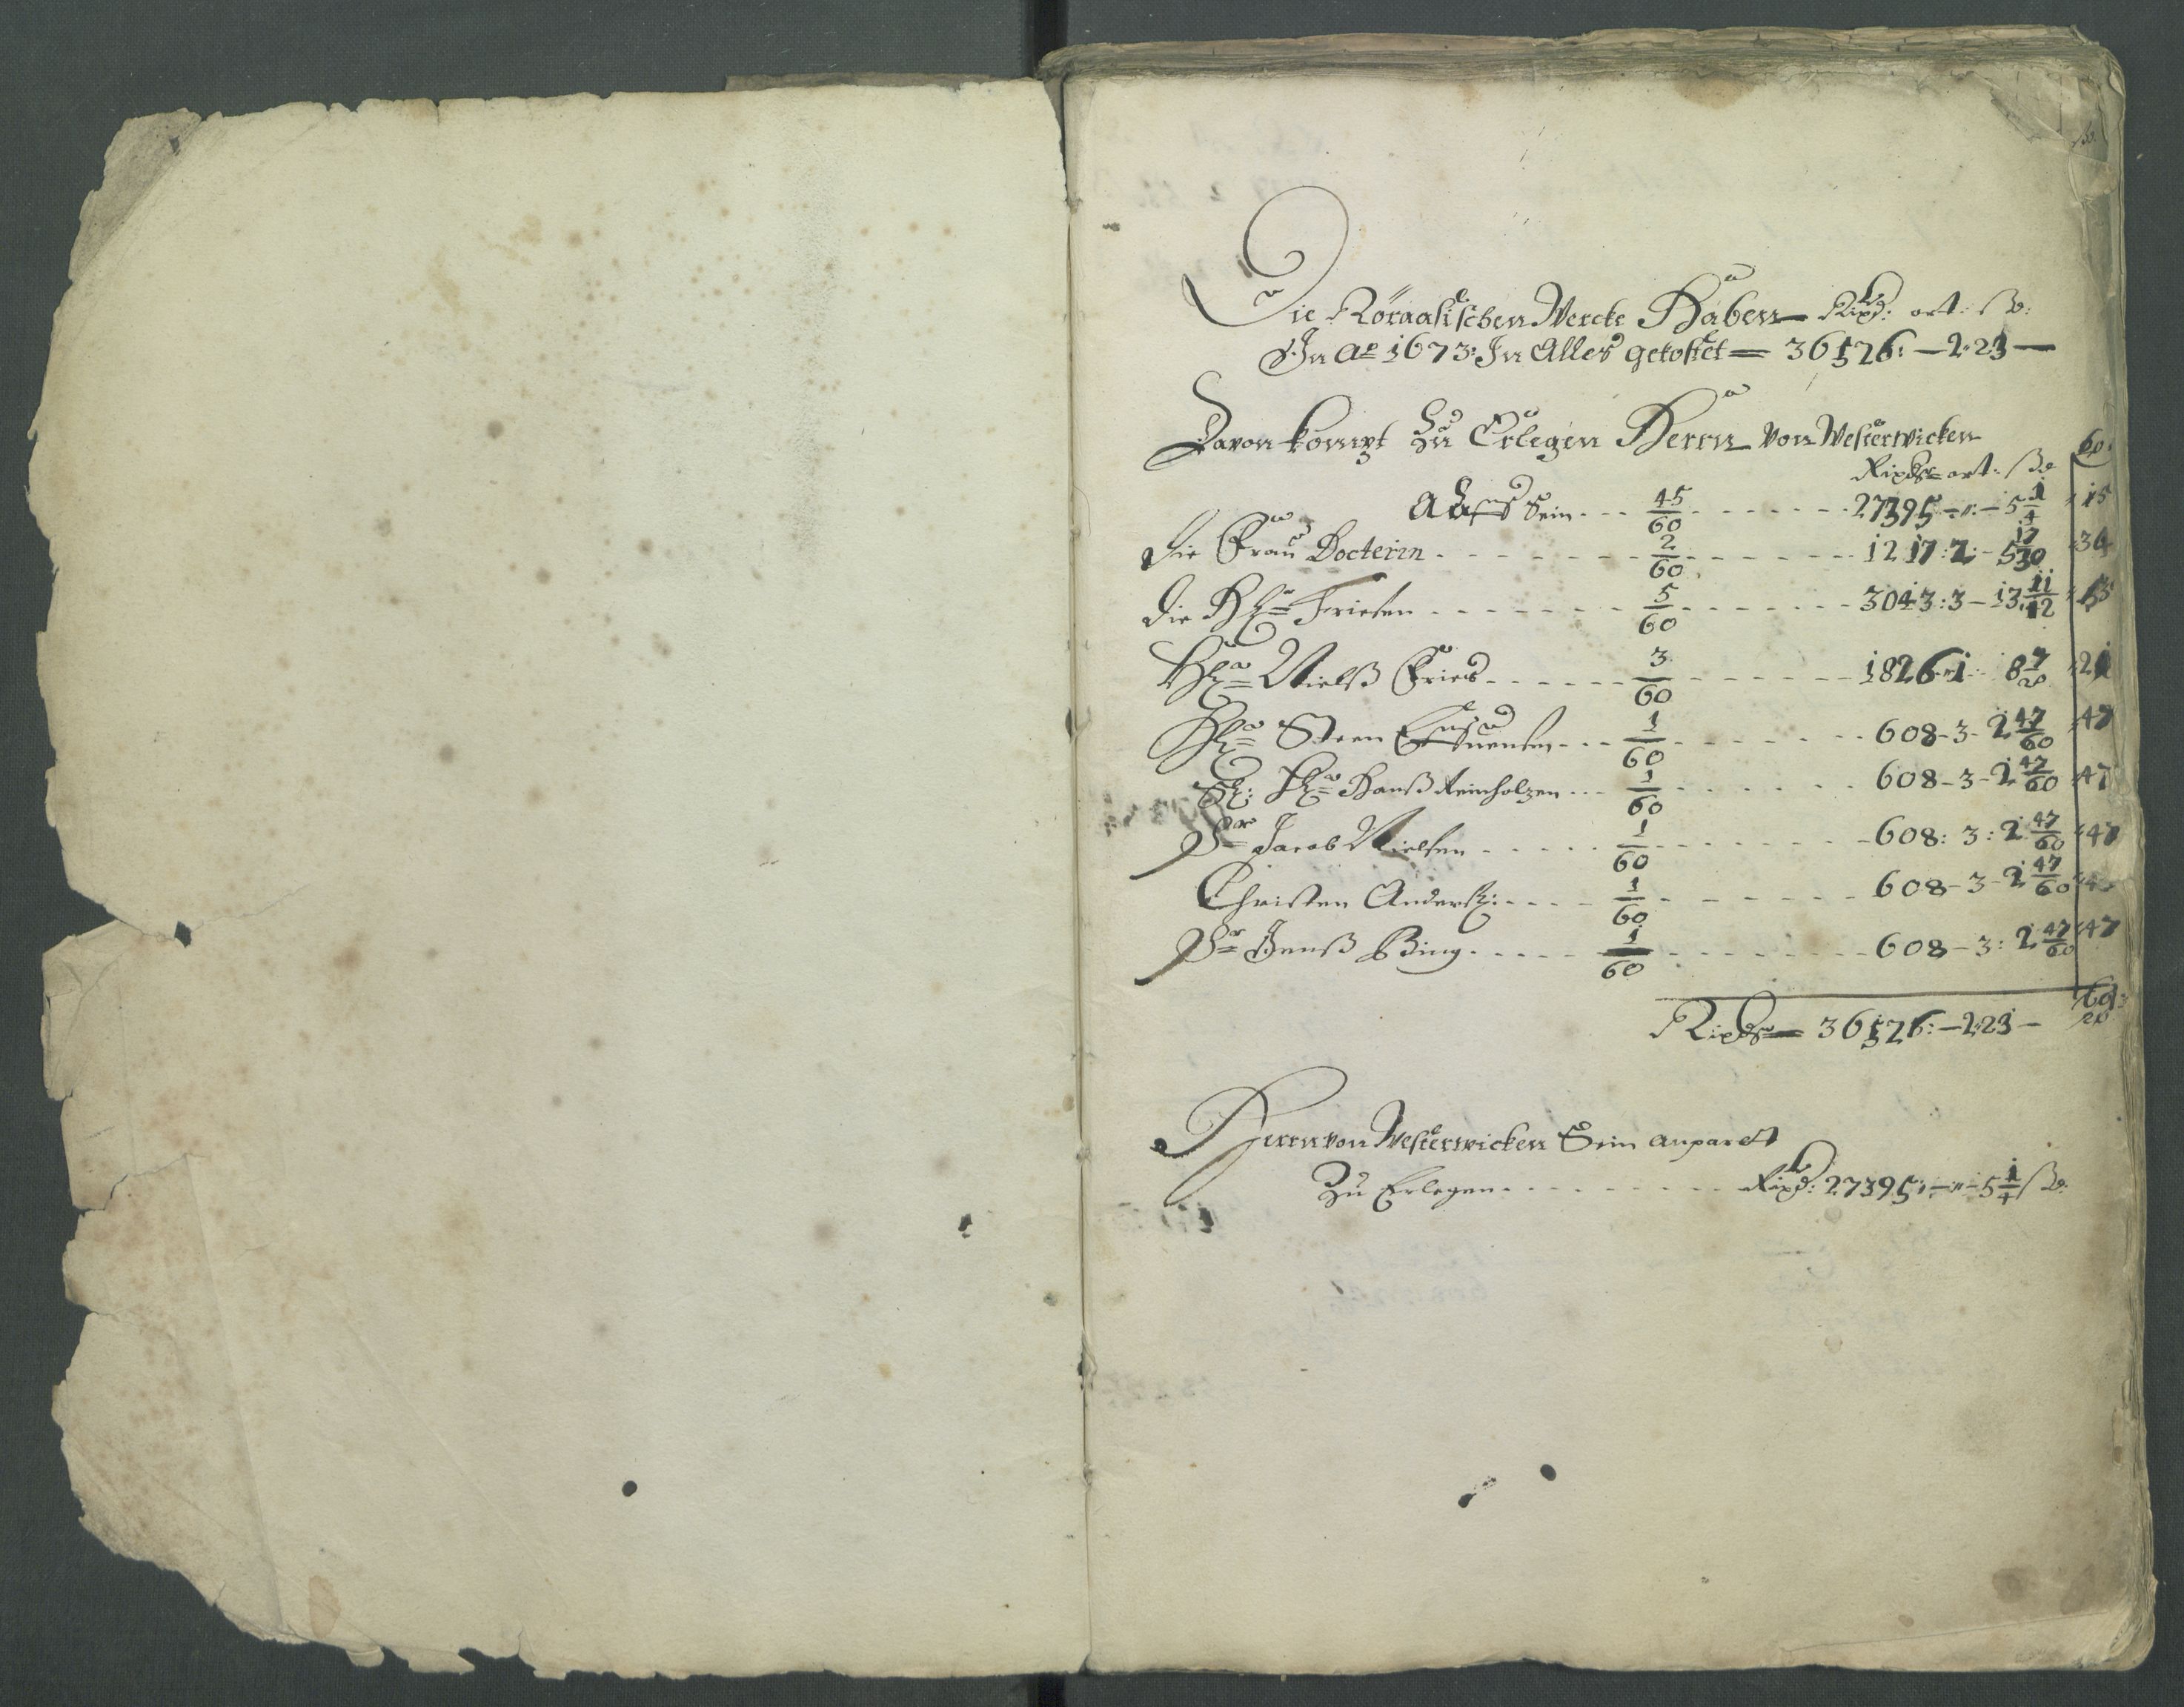 Die Röraasischen Wercke Haben Rixd: ort: ß:
In Ao 1673: In Alles gekostet = 36526: — 2: 23 —
Davon kompt zu Erlegen Herrn von Westerwicken
60
Rixdr= ort: ß:
sein 45/60 27395 — „ — 5 1/4 15
Die Frau Docterin 2/60 1217: 2: — 5 17/30 34
Die Hr= Friesen 5/60 3043: 3 — 13 11/12 55
Hr= Nielß Fries 3/60 1826 1: 8 7/20 21
Hr= Steen 1/60 608 - 3 - 2 47/60 47
Hr= Hanß Reinholzen 1/60 608 - 3 - 2 47/60 47
Sr= Jacob Nielsen 1/60 608: 3: 2 47/60 47
Christen Anders: 1/60 608 - 3 - 2 47/60
Sr= Jenß Bing 1/60 608 - 3: 2 47/60 47
Rixdr= 36526: — 2: 23 —
Herrn von Westerwicken Sein anpart
Zu Erlegen Rixd: 27395: — „ — 5 1/4 ß: